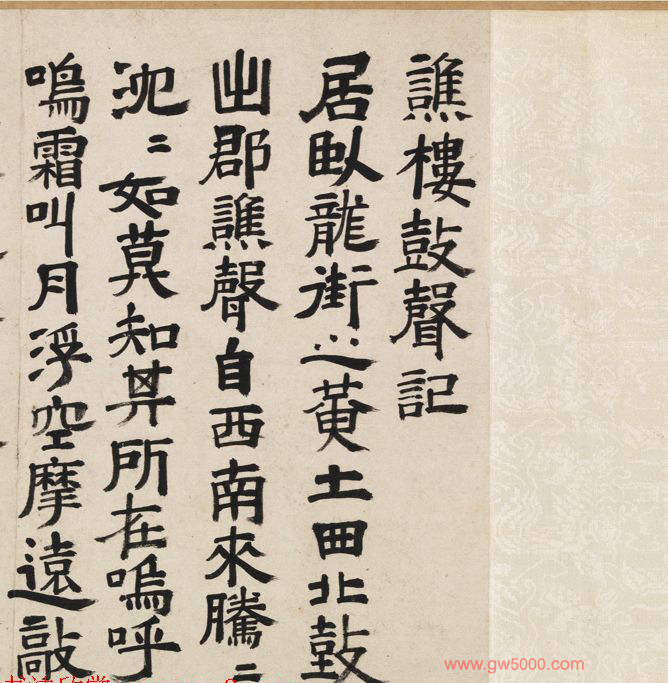 譙樓鼓聲記
居臥龍街之黃土曲北鼓
出郡譙聲自西南來騰〻
沈〻如莫知其所在嗚呼
鳴霜叫月浮空摩遠敲
www.gw5000.com